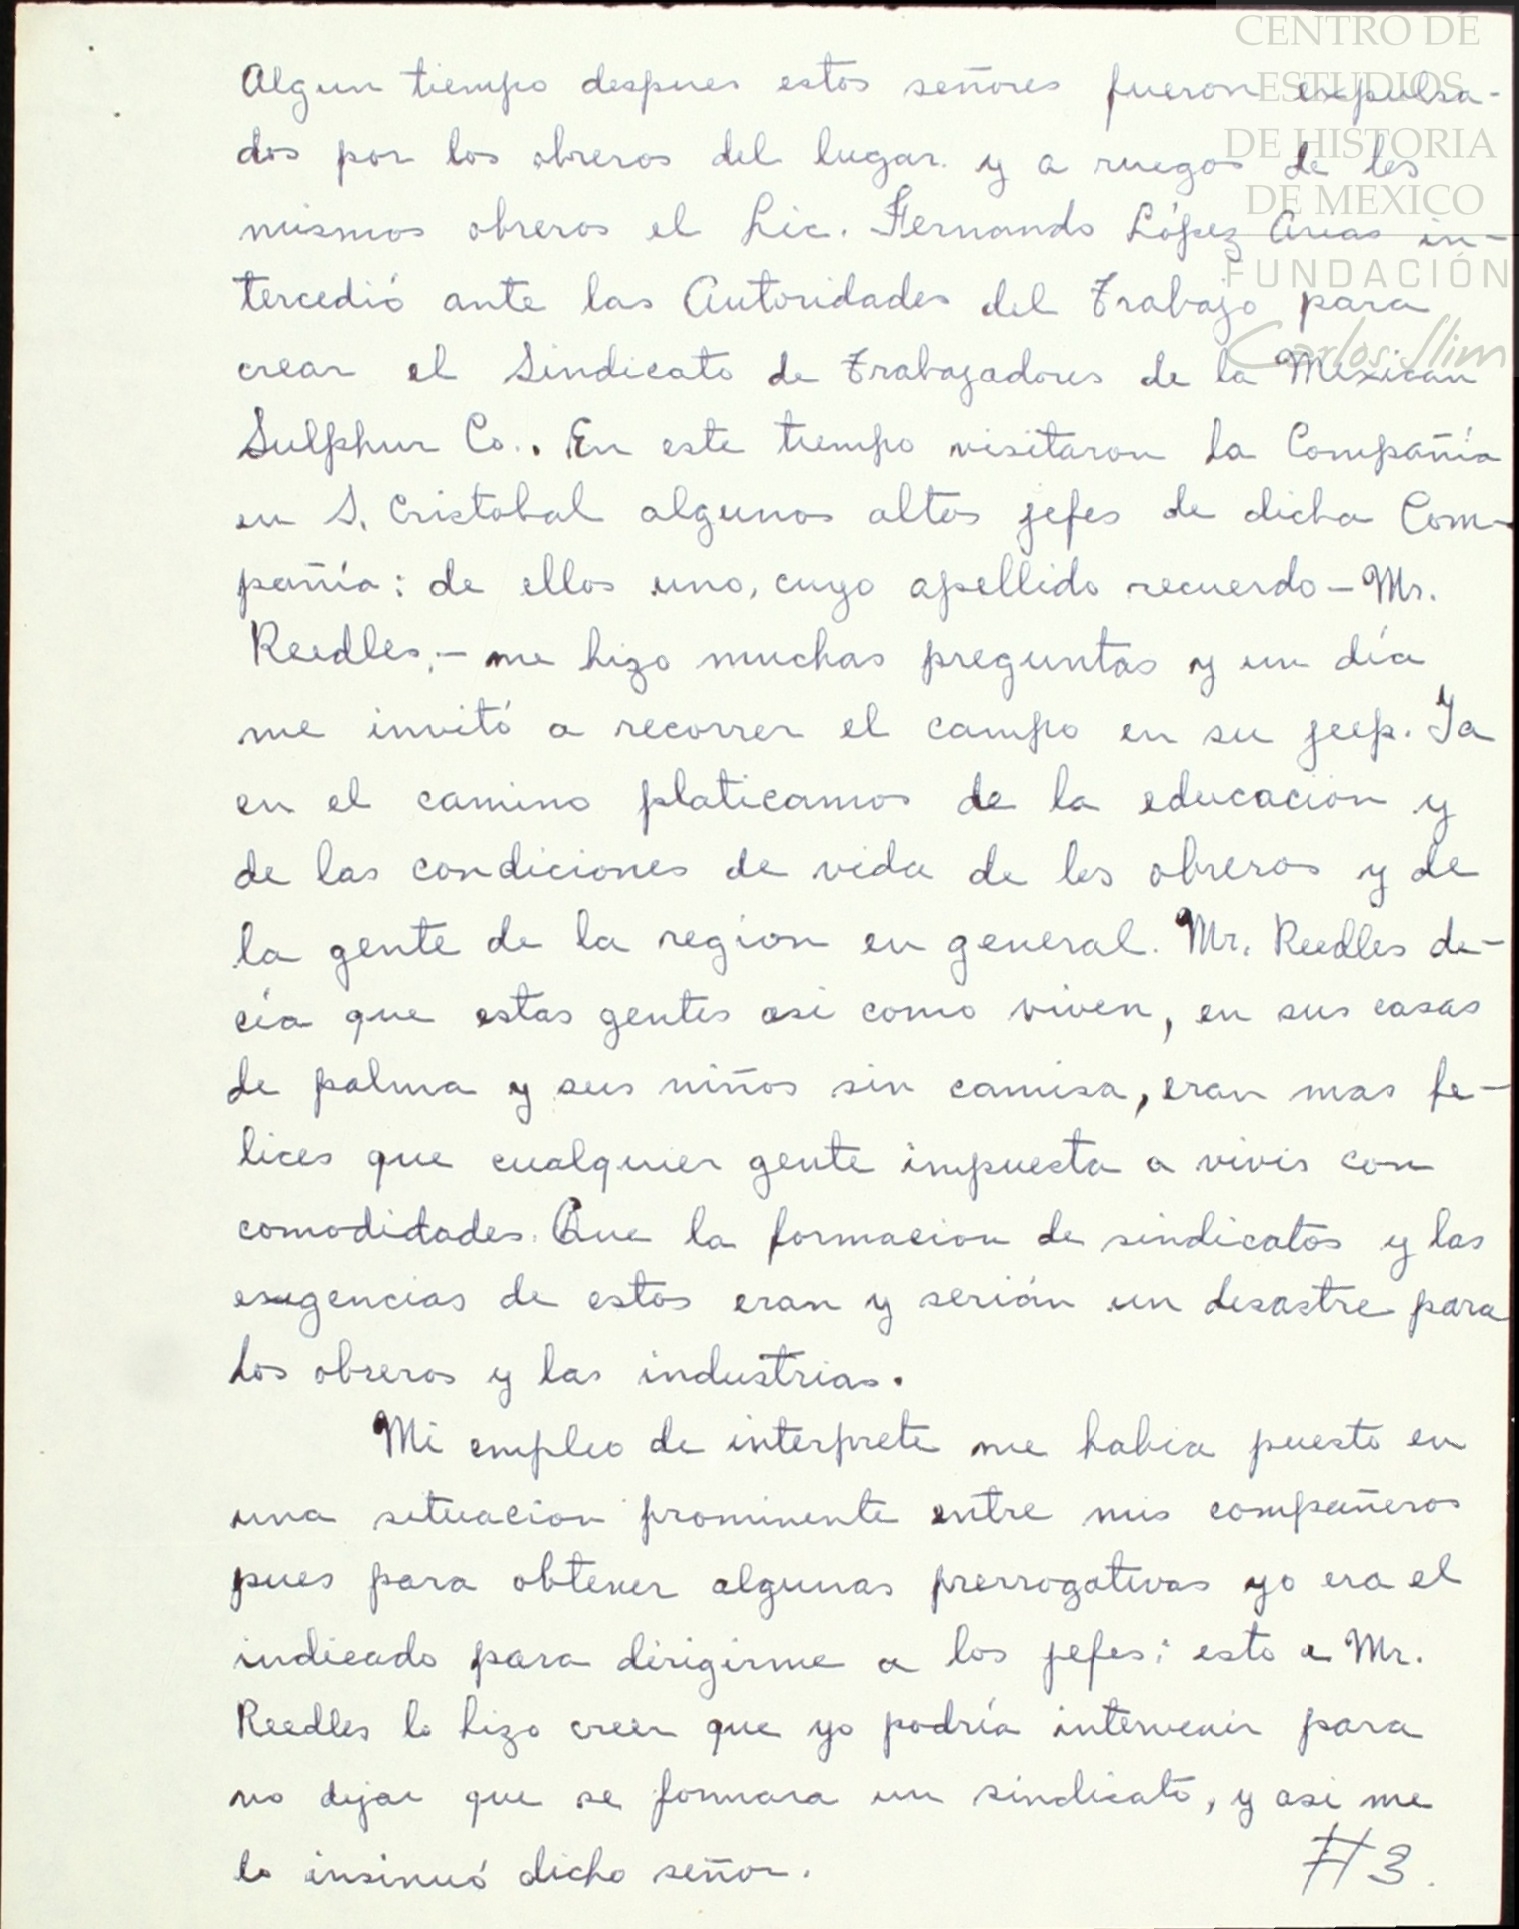 CENTRO DE
ESTUDIOS
DE HISTORIA
DE MEXICO
FUNDACIÓN
Carlos Slim
Algun tiempo despues estos señores fueron expulsa-
dos por los obreros del lugar. y a ruegos de los
mismos obreros el Lic. Fernando López Arias in-
tercedió ante las Autoridades del Trabajo para
crear el Sindicato de Trabajadores de la Mexican
Sulphur Co.. En este tiempo visitaron la Compañía
en S. Cristobal algunos altos jefes de dicha Com-
pañía: de ellos uno, cuyo apellido recuerdo - Mr.
Reedles,- me hizo muchas preguntas y un día
me invitó a recorrer el campo en su jeep. Ya
en el camino platicamos de la educacion y
de las condiciones de vida de los obreros y de
la gente de la region en general. Mr. Reedles de-
cía que estas gentes asi como viven, en sus casas
de palma y sus niños sin camisa, eran mas fe-
lices que cualquier gente impuesta a vivir con
comodidades. Que la formacion de sindicatos y las
exigencias de estos eran y serián un desastre para
los obreros y las industrias.
Mi empleo de interprete me habia puesto en
una situacion prominente entre mis compañeros
pues para obtener algunas prerrogativas yo era el
indicado para dirigirme a los jefes; esto a Mr.
Reedles lo hizo creer que yo podría intervenir para
no dejar que se formara un sindicato, y asi me
lo insinuó dicho señor.
#3.